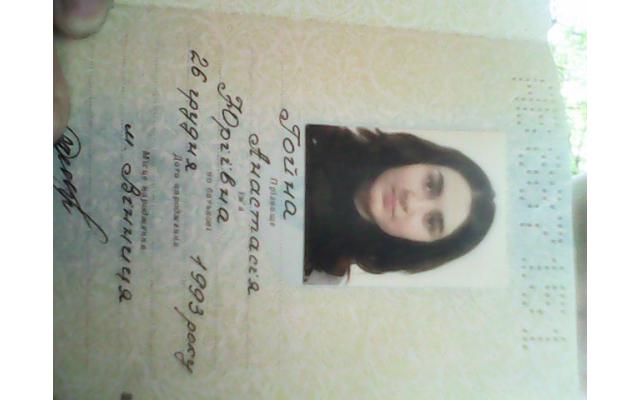 Гойна
Прізвище
Анастасія
Ім'я
Юріївна
по батькові
26 грудня 1993 року
Дата народження
м. Вінниця
Місце народження